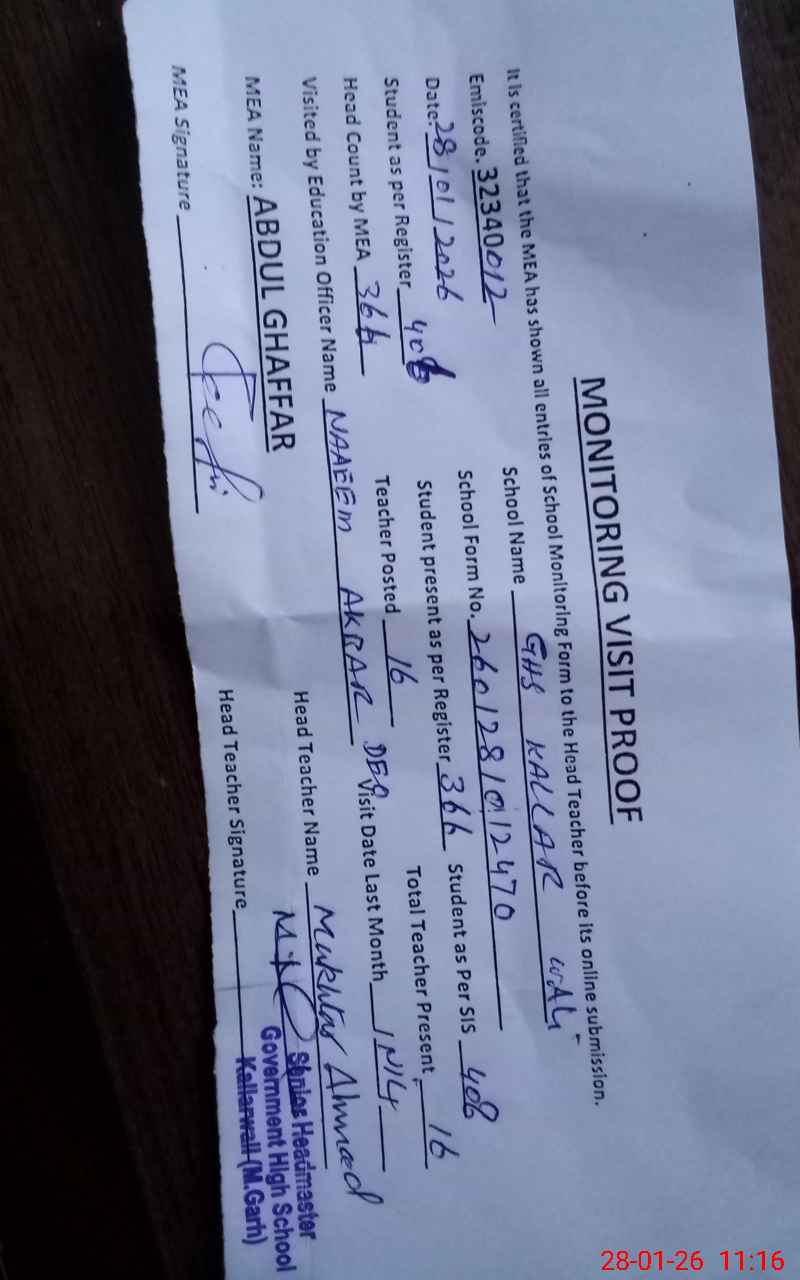 MONITORING VISIT PROOF
It is certified that the MEA has shown all entries of School Monitoring Form to the Head Teacher before its online submission.
Emiscode. 32340012 School Name GHS KALLAR WALI
Date. 28/01/2026 School Form No. 2601281012470
Student as per Register 408 Student present as per Register 366 Student as Per SIS 408
Head Count by MEA 366 Teacher Posted 16 Total Teacher Present 16
Visited by Education Officer Name NAAEEM AKBAR DEO Visit Date Last Month
MEA Name: ABDUL GHAFFAR Head Teacher Name Mukhtar Ahmad
MEA Signature Head Teacher Signature
Senior Headmaster
Government High School
Kallarwali (M.Garh)
28-01-26 11:16